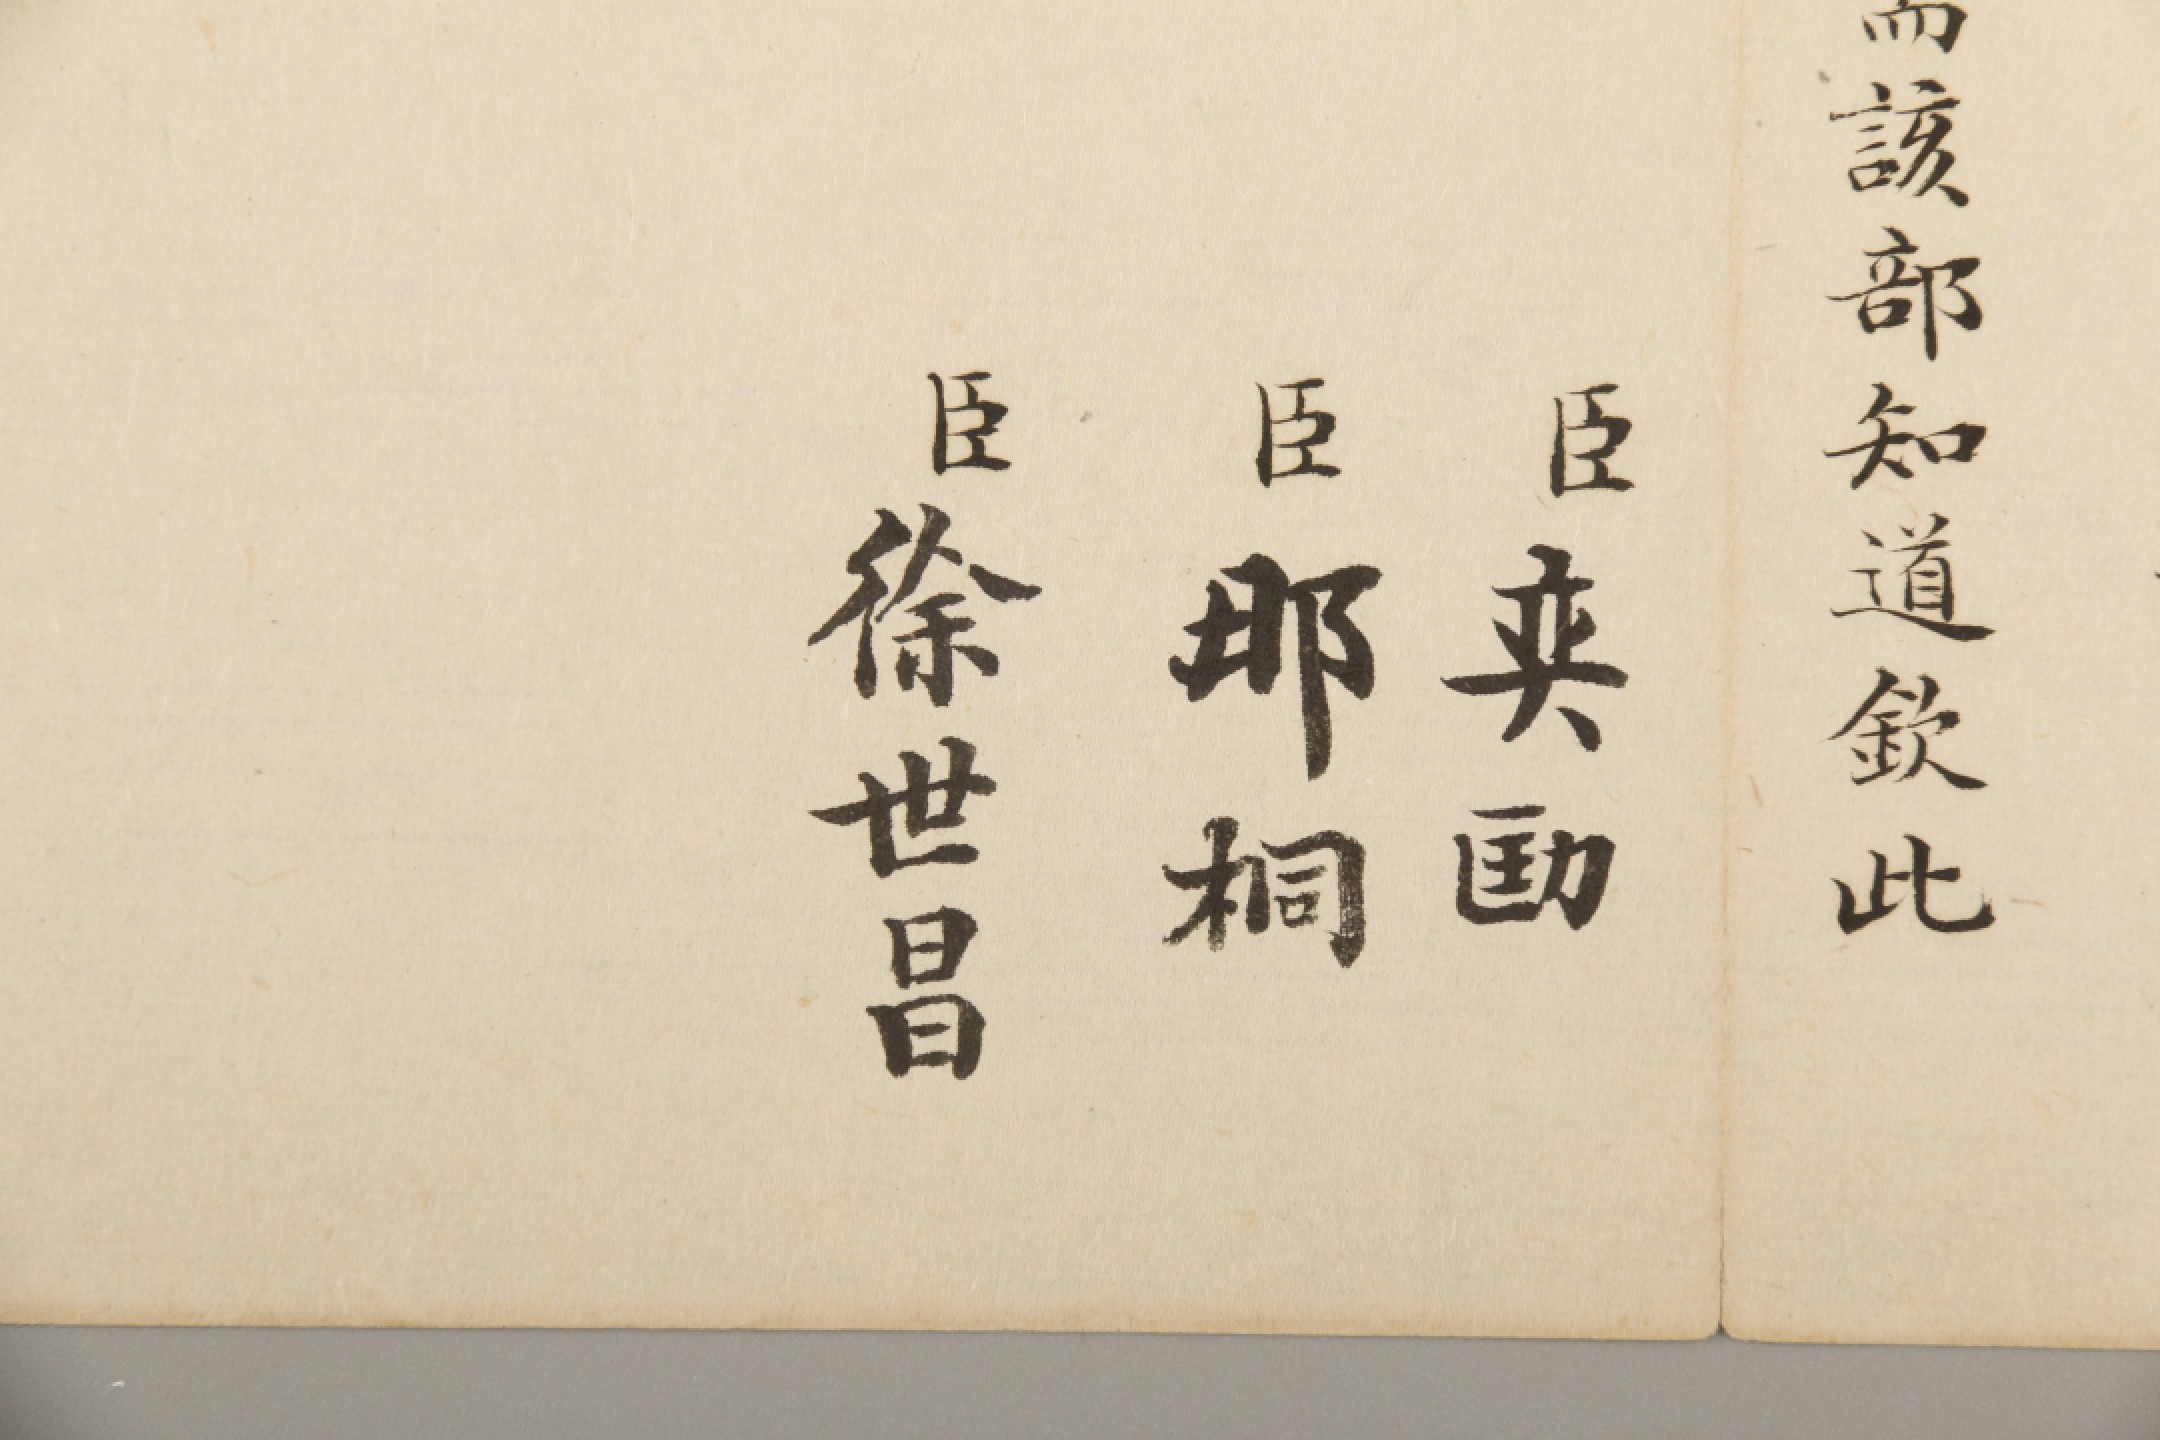 而該部知道欽此
臣奕劻
臣那桐
臣徐世昌